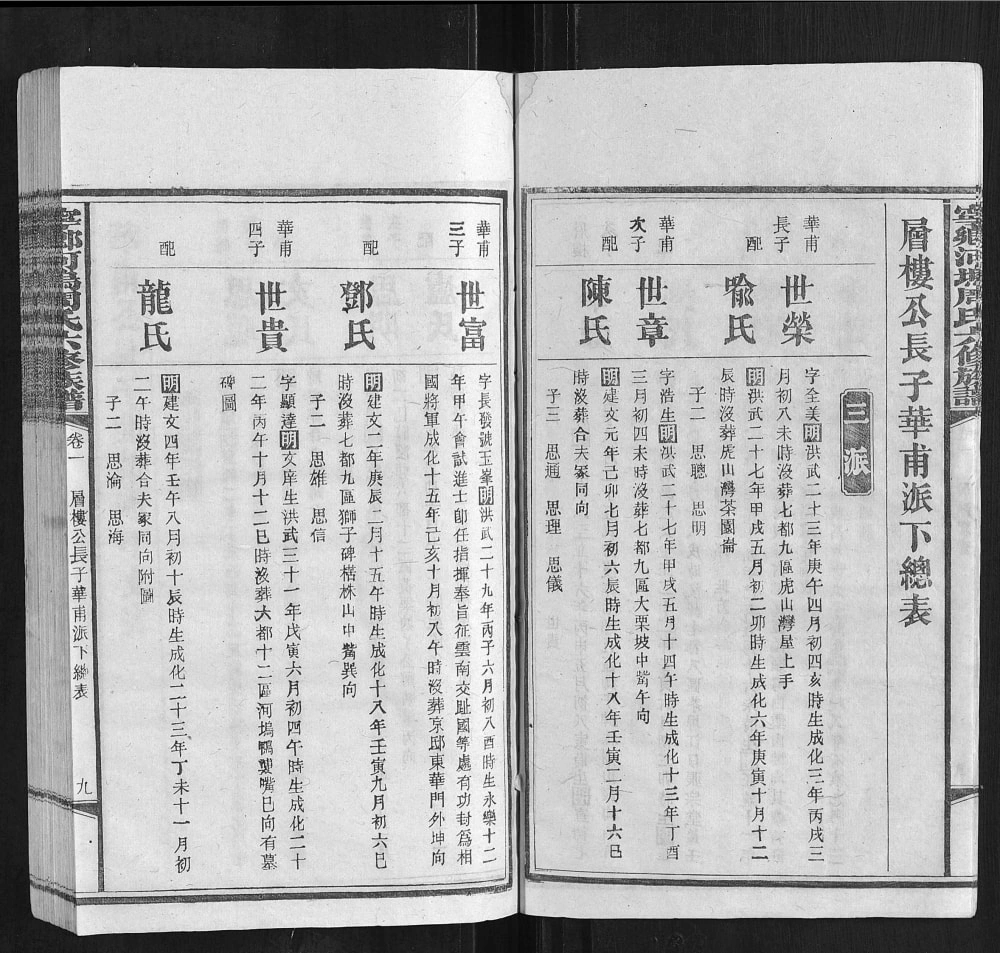 層樓公長子華甫派下總表
三派
華甫長子
世榮
字全美明洪武二十三年庚午四月初四亥時生成化三年丙戌三
月初八未時沒葬七都九區虎山灣屋上手
配
喻氏
明洪武二十七年甲戌五月初二卯時生成化六年庚寅十月十二
辰時沒葬虎山灣茶園崙
子二 思聰 思明
華甫次子
世章
字浩生明洪武二十七年甲戌五月十四午時生成化十三年丁酉
三月初四未時沒葬七都九區大栗坡中觜午向
配
陳氏
明建文元年己卯七月初六辰時生成化十八年壬寅二月十六巳
時沒葬合夫冢同向
子三 思通 思理 思儀
華甫三子
世富
字長發號玉峯明洪武二十九年丙子六月初八酉時生永樂十二
年甲午會試進士卽任指揮奉旨征雲南交趾國等處有功封爲相
國將軍成化十五年己亥十月初八午時沒葬京邸東華門外坤向
配
鄧氏
明建文二年庚辰二月十五午時生成化十八年壬寅九月初六巳
時沒葬七都九區獅子碑楛株山中觜巽向
子二 思雄 思信
華甫四子
世貴
字顯達明文庠生洪武三十一年戊寅六月初四午時生成化二十
二年丙午十月十二巳時沒葬六都十二區河塢鴨嬰嘴巳向有墓
碑圖
配
龍氏
明建文四年壬午八月初十辰時生成化二十三年丁未十一月初
二午時沒葬合夫冢同向附圖
子二 思渝 思海
寧鄉河塢周氏六修族譜
卷一
層樓公長子華甫派下總表
九